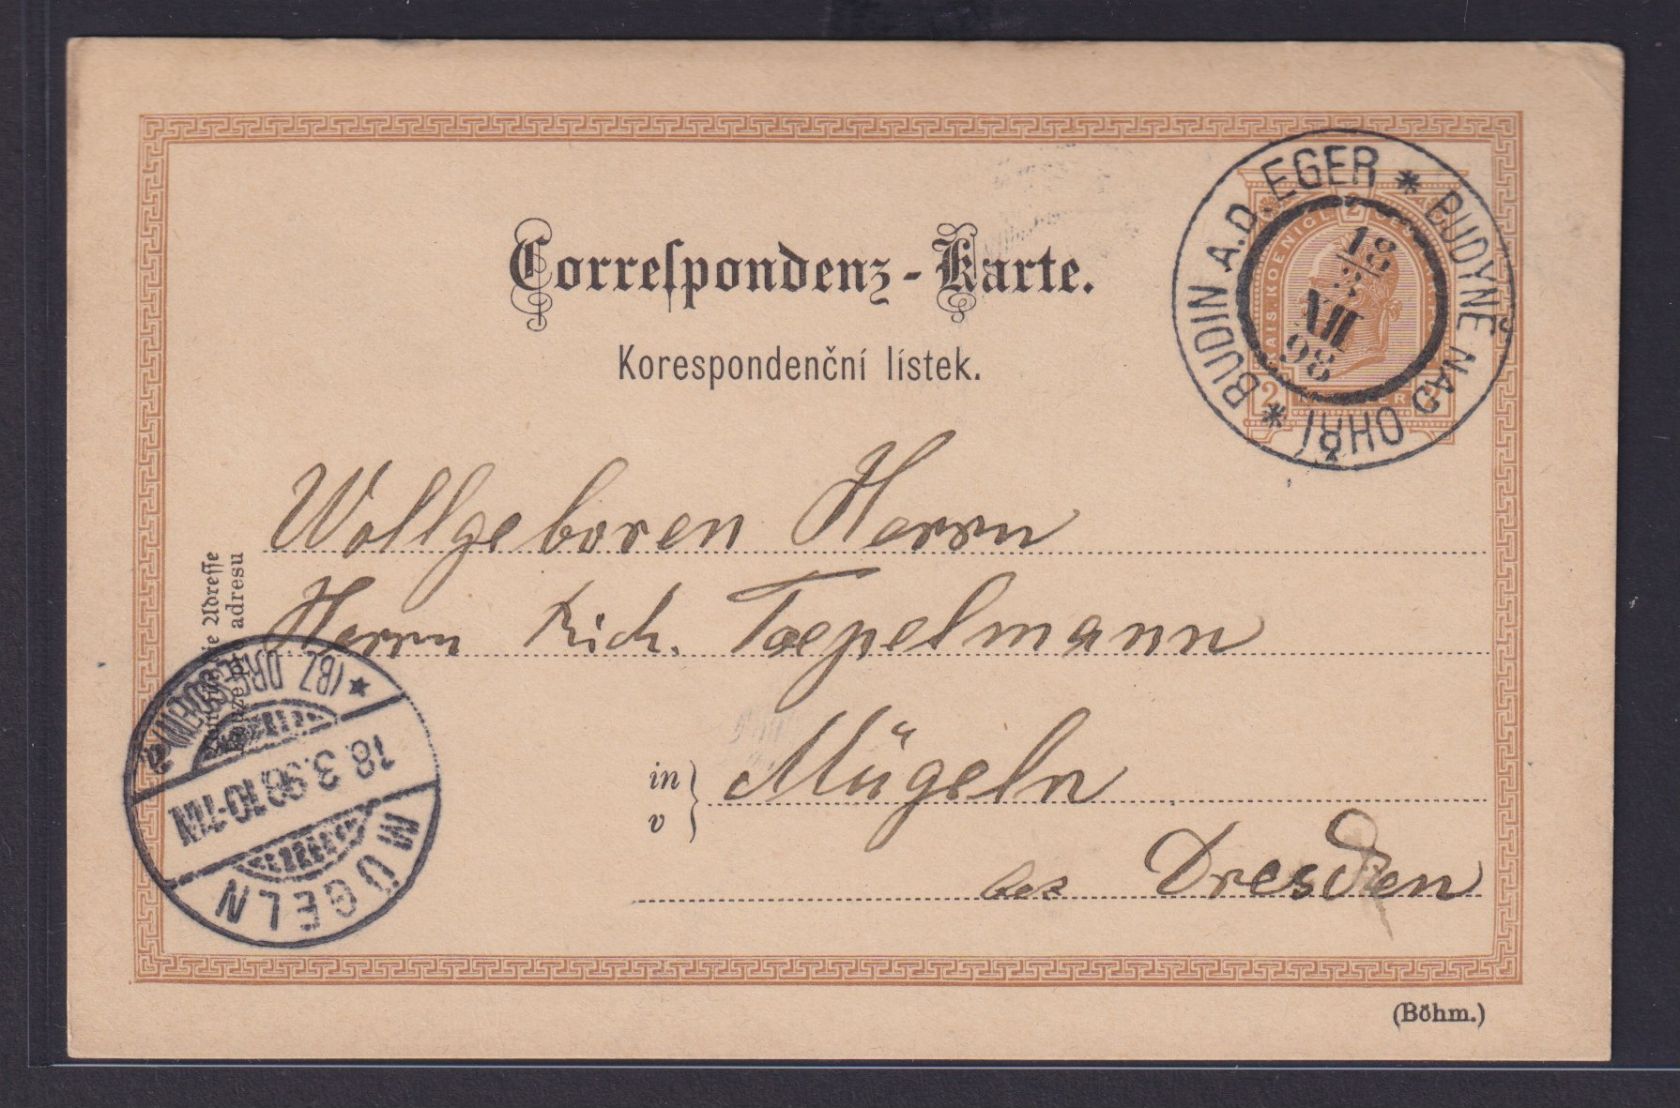 Correspondenz-Karte.
Korespondenční lístek.
BUDIN A.D. EGER * BUDYNĚ NAD OHŘÍ *
18
3
XII
98
2
2
Wollgeboren Herrn
Herrn Rich. Toepelmann
in
v
Mügeln
bei Dresden
Adresse
adresu
MÜGELN
18.3.98.10-11N.
* (BZ. DRESDEN) a.
(Böhm.)